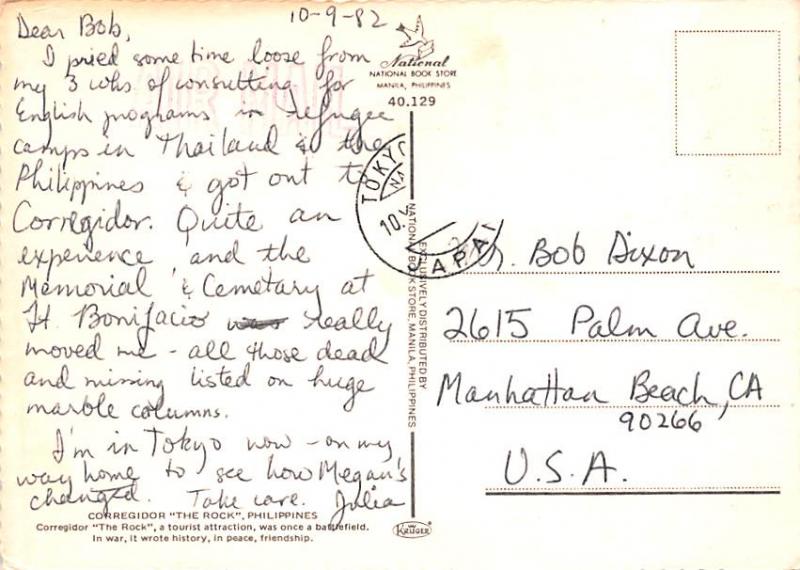 10-9-82
Dear Bob,
I pried some time loose from
my 3 wks of consulting for
English programs in refugee
camps in Thailand & the
Philippines & got out to
Corregidor. Quite an
experience, and the
Memorial & Cemetary at
Ft. Bonifacio was really
moved me - all those dead
and missing listed on huge
marble columns.
I'm in Tokyo now - on my
way home to see how Megan's
changed. Take care. Julia
CORREGIDOR "THE ROCK", PHILIPPINES
Corregidor "The Rock", a tourist attraction, was once a battlefield.
In war, it wrote history, in peace, friendship.
National
NATIONAL BOOK STORE
MANILA, PHILIPPINES
40.129
AIR MAIL
TOKYO
NA
10.
JAPAN
EXCLUSIVELY DISTRIBUTED BY
NATIONAL BOOK STORE, MANILA, PHILIPPINES
Mr. Bob Dixon
2615 Palm Ave.
Manhattan Beach, CA
90266
U.S.A.
KRÜGER